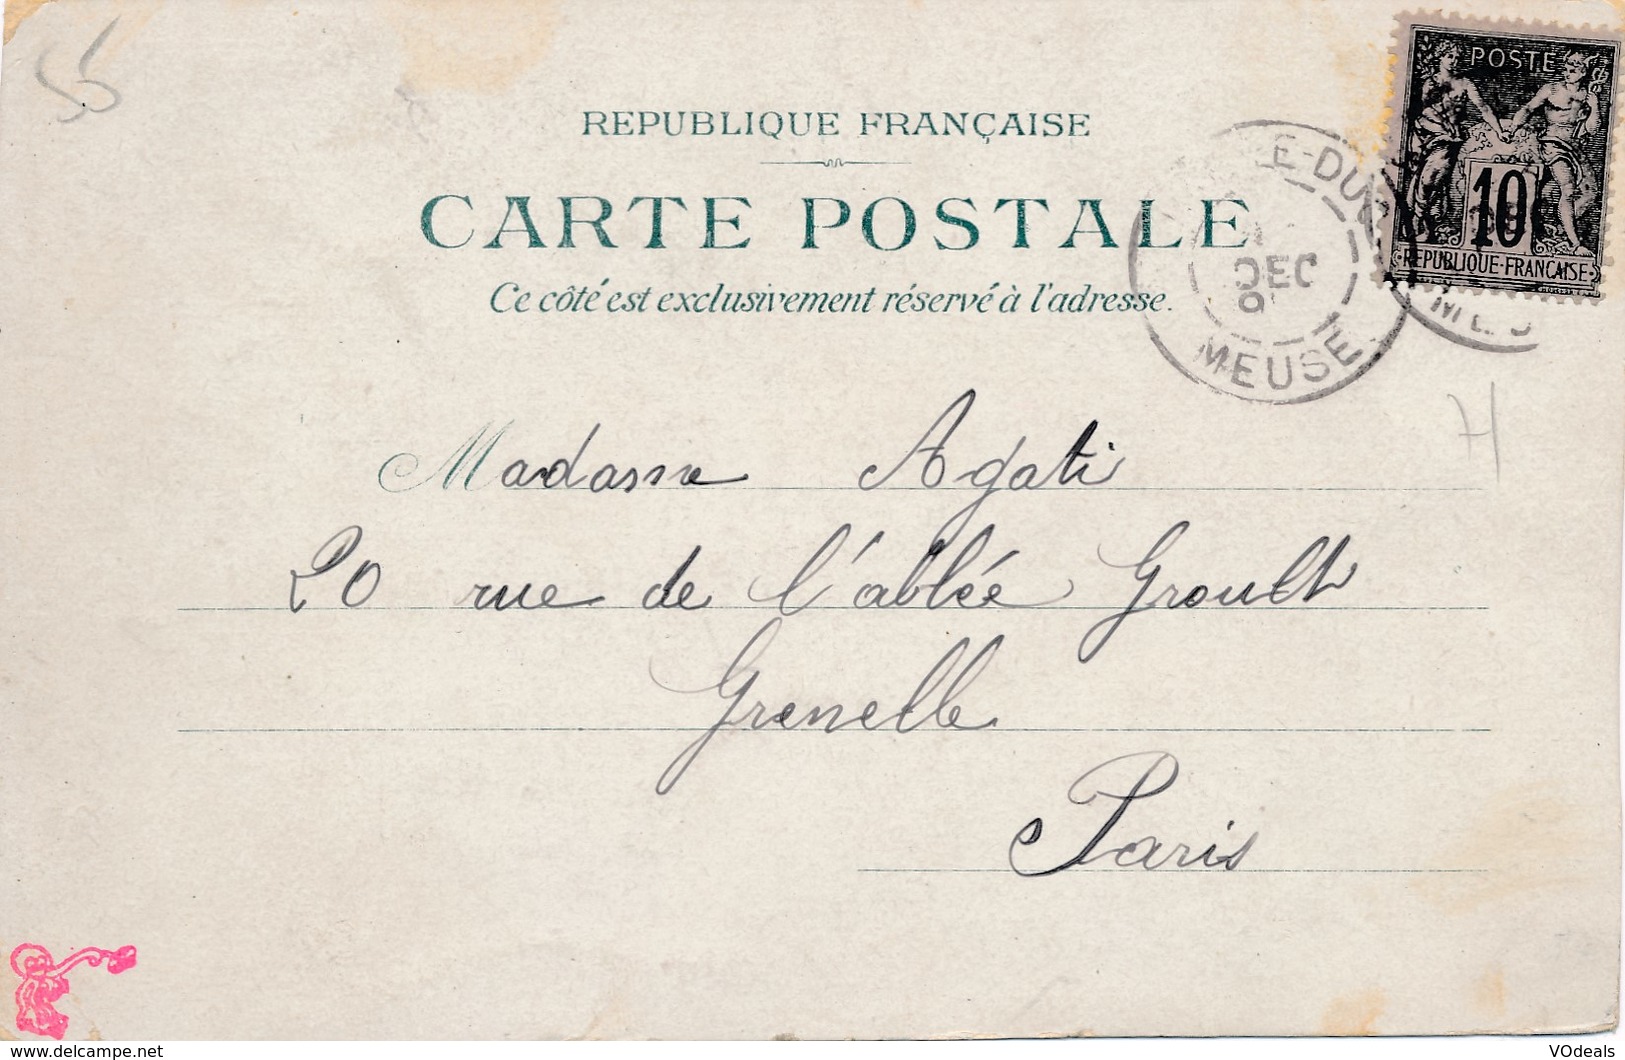 55
REPUBLIQUE FRANÇAISE
CARTE POSTALE
Ce côté est exclusivement réservé à l'adresse.
POSTE
10
REPUBLIQUE-FRANÇAISE
E-DUC
DEC
9
MEUSE
H
Madame Agati
20 rue de l'abbée Groult
Grenelle
Paris
www.delcampe.net
VOdeals